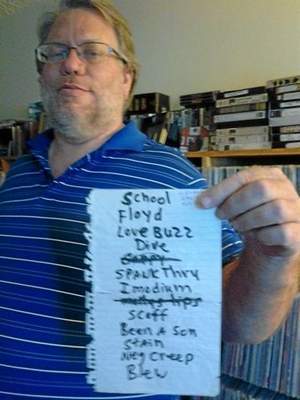 School
Floyd
Love Buzz
Dive
Sappy
Spank Thru
Imodium
molly's lips
Scoff
Been A Son
Stain
Neg Creep
Blew